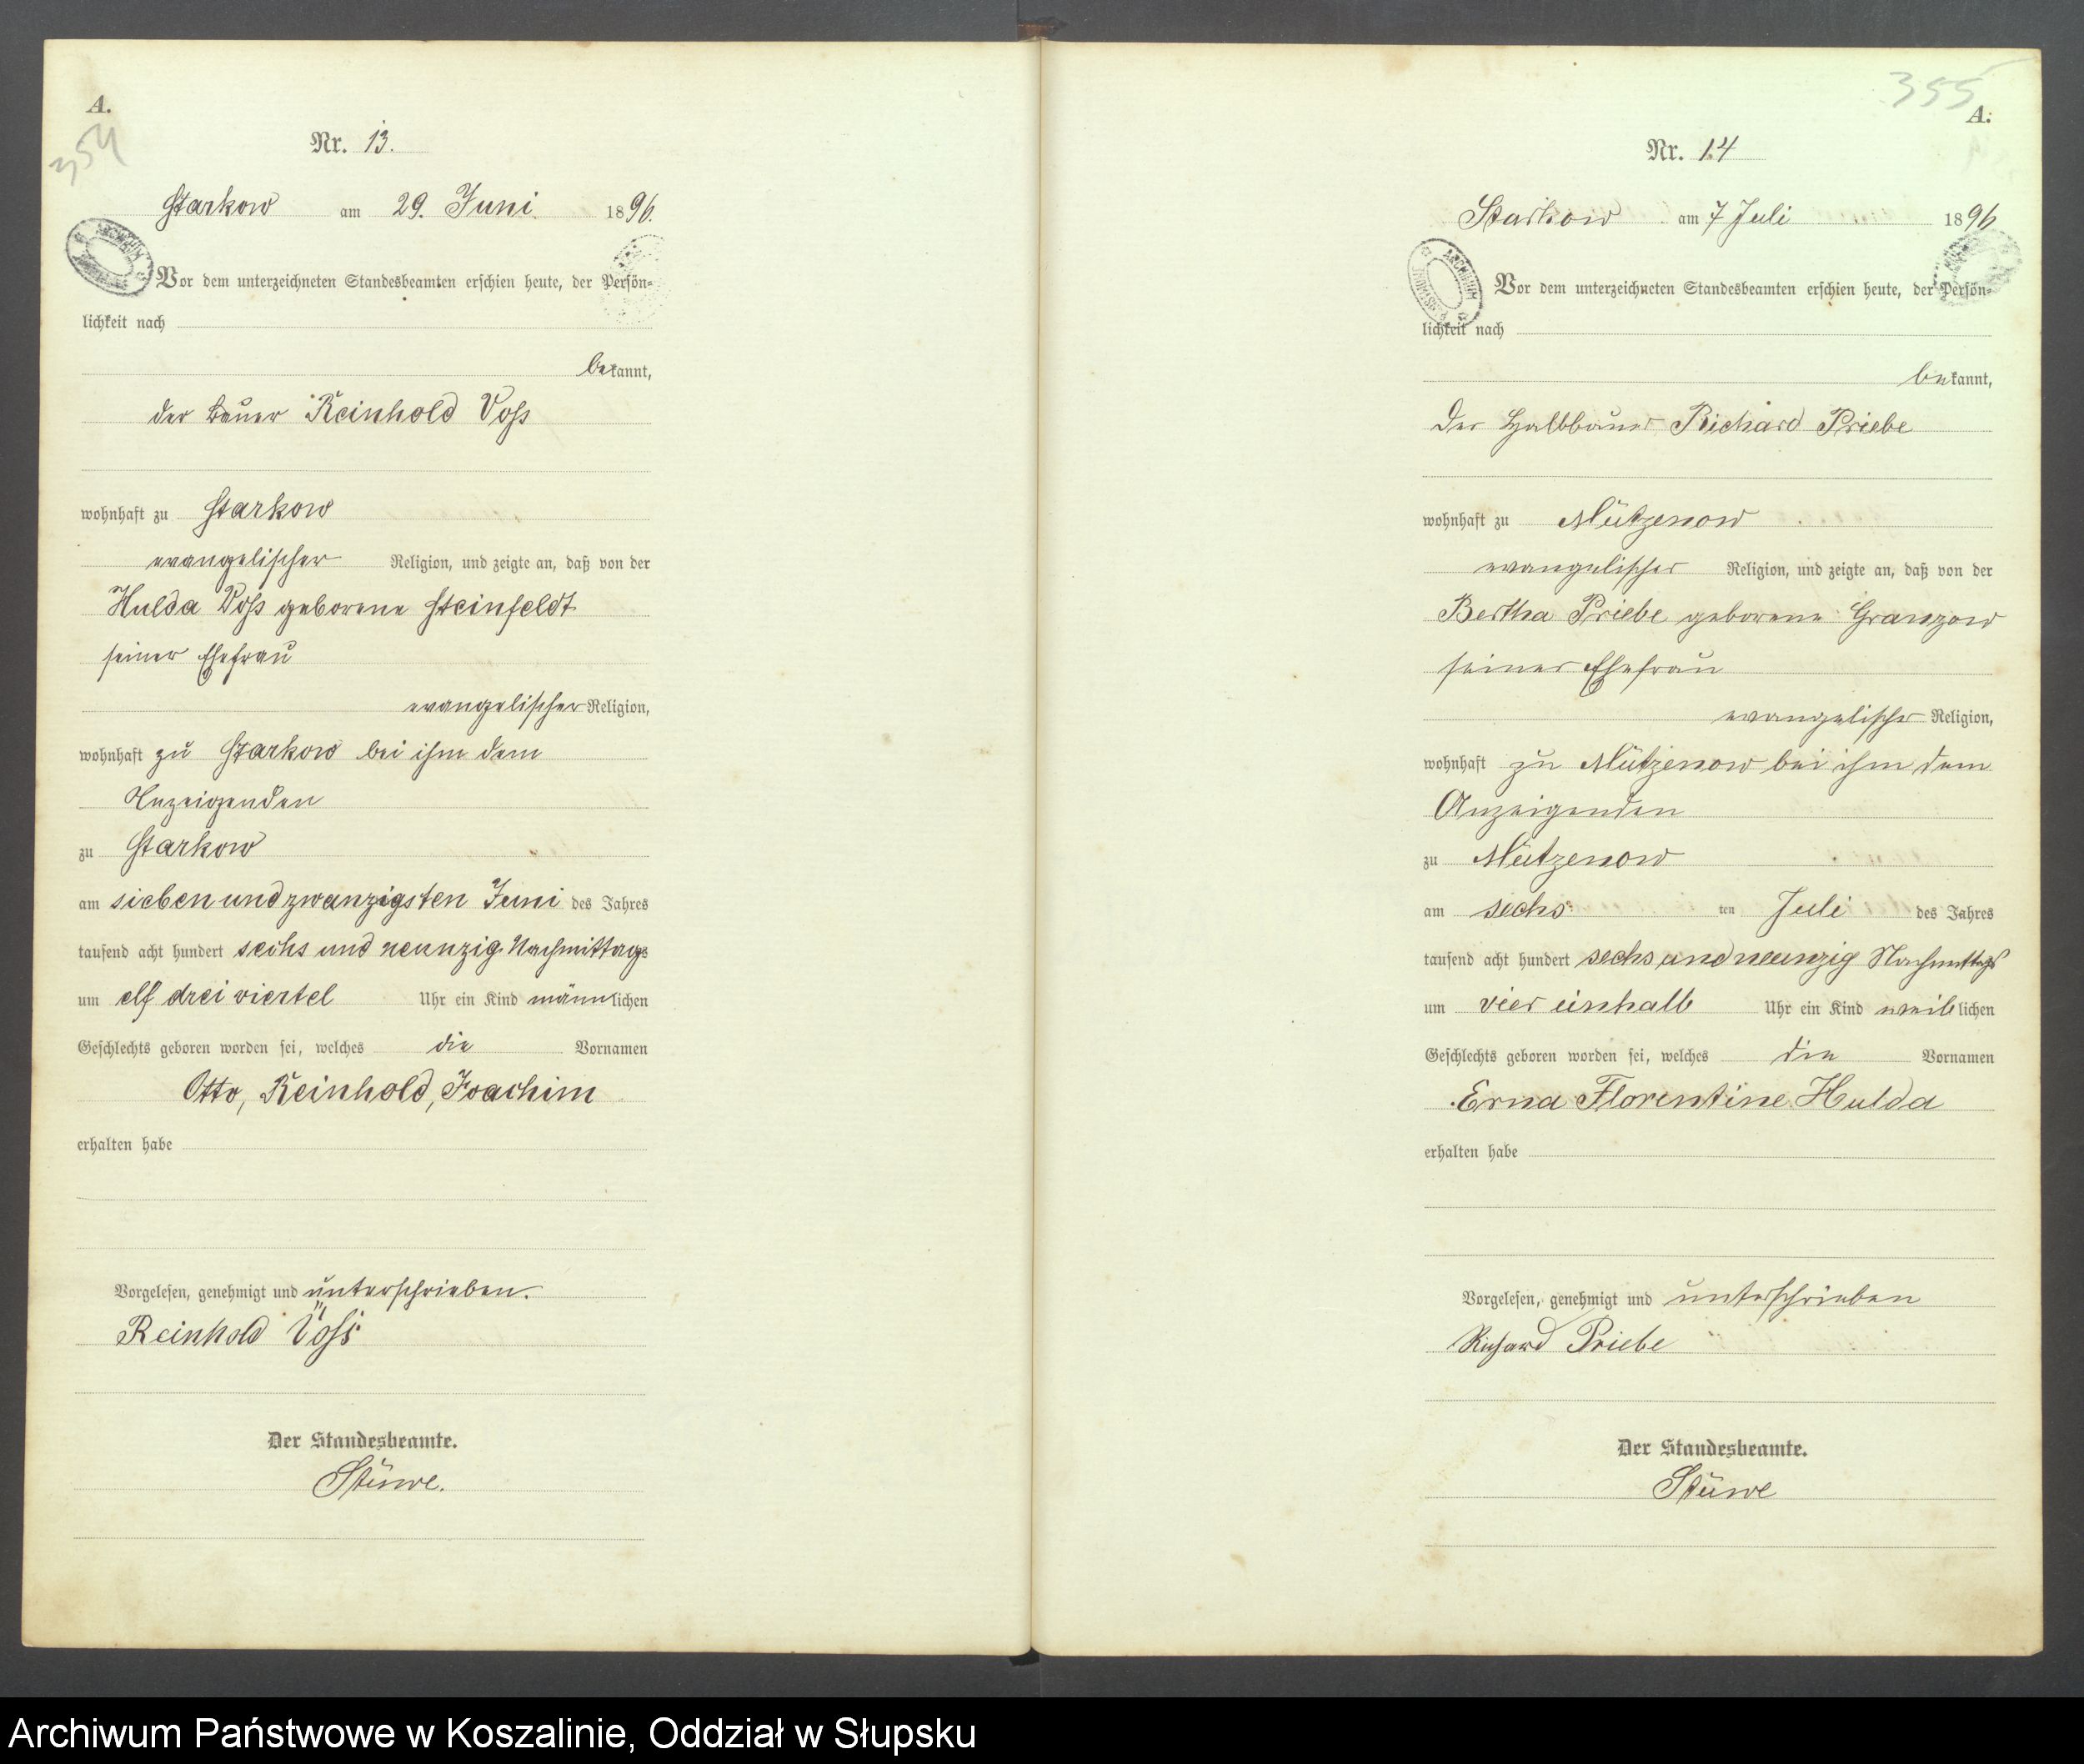 A.
354
Nr. 13.
Starkow am 29. Juni 1896.
Vor dem unterzeichneten Standesbeamten erschien heute, der Persön-
lichkeit nach
bekannt,
der Bauer Reinhold Voss
wohnhaft zu Starkow
evangelischer Religion, und zeigte an, daß von der
Hulda Voss geborene Steinfeldt
seiner Ehefrau
evangelischer Religion,
wohnhaft zu Starkow bei ihm dem
Anzeigenden
zu Starkow
am siebenundzwanzigsten Juni des Jahres
tausend acht hundert sechs und neunzig Nachmittags
um elf drei viertel Uhr ein Kind männlichen
Geschlechts geboren worden sei, welches die Vornamen
Otto, Reinhold, Joachim
erhalten habe
Vorgelesen, genehmigt und unterschrieben.
Reinhold Voss
Der Standesbeamte.
Stüwe.
355
A.
Nr. 14
Starkow am 7 Juli 1896
ARCHIWUM
Vor dem unterzeichneten Standesbeamten erschien heute, der Persön-
lichkeit nach
bekannt,
Der Halbbauer Richard Priebe
wohnhaft zu Mützenow
evangelischer Religion, und zeigte an, daß von der
Bertha Priebe geborene Granzow
seiner Ehefrau
evangelischer Religion,
wohnhaft zu Mützenow bei ihm dem
Anzeigenden
zu Mützenow
am sechs ten Juli des Jahres
tausend acht hundert sechs und neunzig Nachmittags
um vier einhalb Uhr ein Kind weiblichen
Geschlechts geboren worden sei, welches die Vornamen
Erna Florentine Hulda
erhalten habe
Vorgelesen, genehmigt und unterschrieben
Richard Priebe
Der Standesbeamte.
Stüwe
Archiwum Państwowe w Koszalinie, Oddział w Słupsku